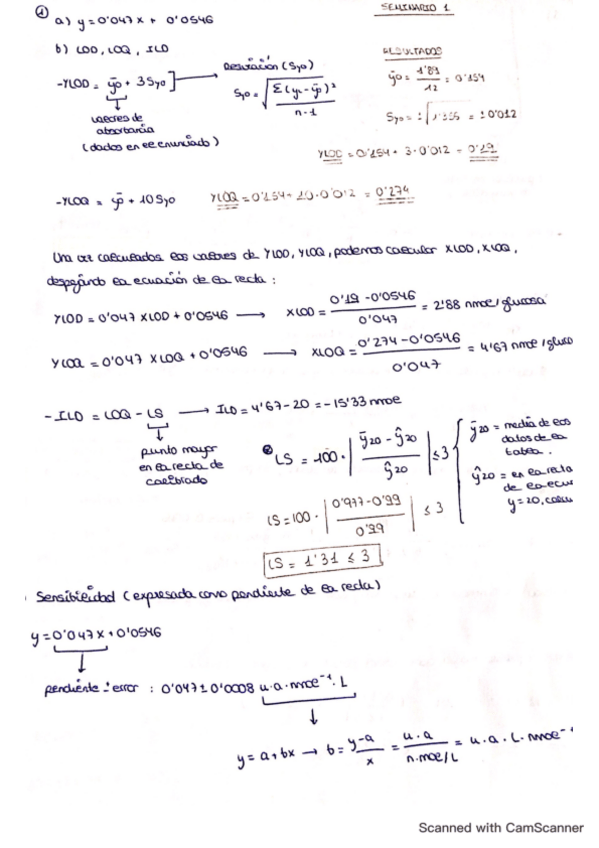 SEMINARIO 1
① a) y = 0'047x + 0'0546
b) LOD, LOQ, ILD
RESULTADOS
- YLOD = ȳo + 3Syo → Desviación (Syo)
Syo = √(Σ(yi - ȳo)² / n-1)
valores de
absorbancia
(dados en el enunciado)
ȳo = 1'89 / 12 = 0'154
YLOD = 0'154 + 3·0'012 = 0'19
- YLOQ = ȳo + 10Syo
YLOQ = 0'154 + 10·0'012 = 0'274
Una vez calculados los valores de YLOD, YLOQ, podemos calcular XLOD, XLOQ,
despejando la ecuación de la recta:
YLOD = 0'047 XLOD + 0'0546 → XLOD = 0'19 - 0'0546 / 0'047 = 2'88 nmol/glucosa
YLOQ = 0'047 XLOQ + 0'0546 → XLOQ = 0'274 - 0'0546 / 0'047 = 4'67 nmol/gluco
- ILD = LOQ - LS → ILD = 4'67 - 20 = -15'33 nmol
punto mayor
en la recta de
calibrado
LS = 100 · | ȳ20 - ŷ20 / ŷ20 | ≤ 3
ȳ20 = media de los
datos de la
tabla.
ŷ20 = en la recta
de la ecu
y = 20, calcu
LS = 100 · | 0'977 - 0'99 / 0'99 | ≤ 3
LS = 1'31 ≤ 3
Sensibilidad (expresada como pendiente de la recta)
y = 0'047x + 0'0546
pendiente ± error : 0'047 ± 0'0008 u.a·nmol⁻¹·L
y = a + bx → b = y-a / x = u.a / nmol/L = u.a·L·nmol⁻¹
Scanned with CamScanner